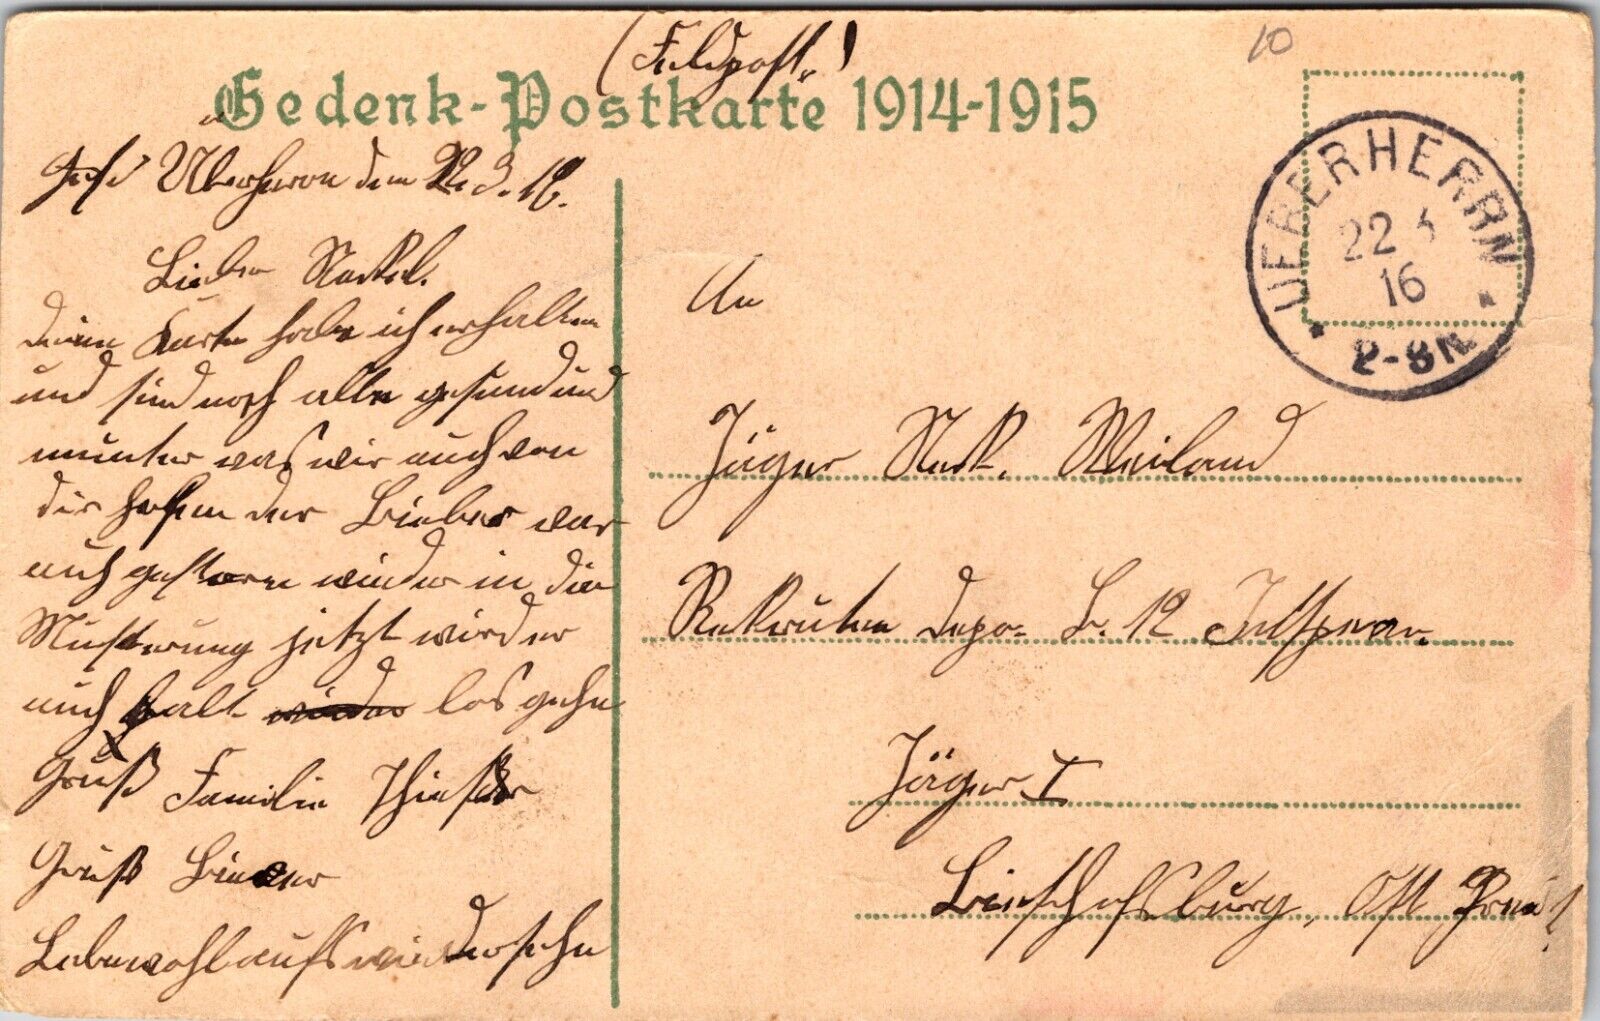 (Feldpost.)
10
Gedenk-Postkarte 1914-1915
Überherrn den 22.3.16.
UEBERHERRN
22 3
16
2-8N.
Lieber
deine Karte habe ich erhalten
und sind noch alle gesund und
munter was wir auch von
dir hoffen der war
auch gestern wieder in die
Musterung jetzt wird er
auch balt wieder los gehn
Gruß Familie
Gruß
Lebewohl aufs wiedersehn
An
Jäger Weiland
Rekruten Depo.
Jäger I
Bischofsburg, Ost Preuß